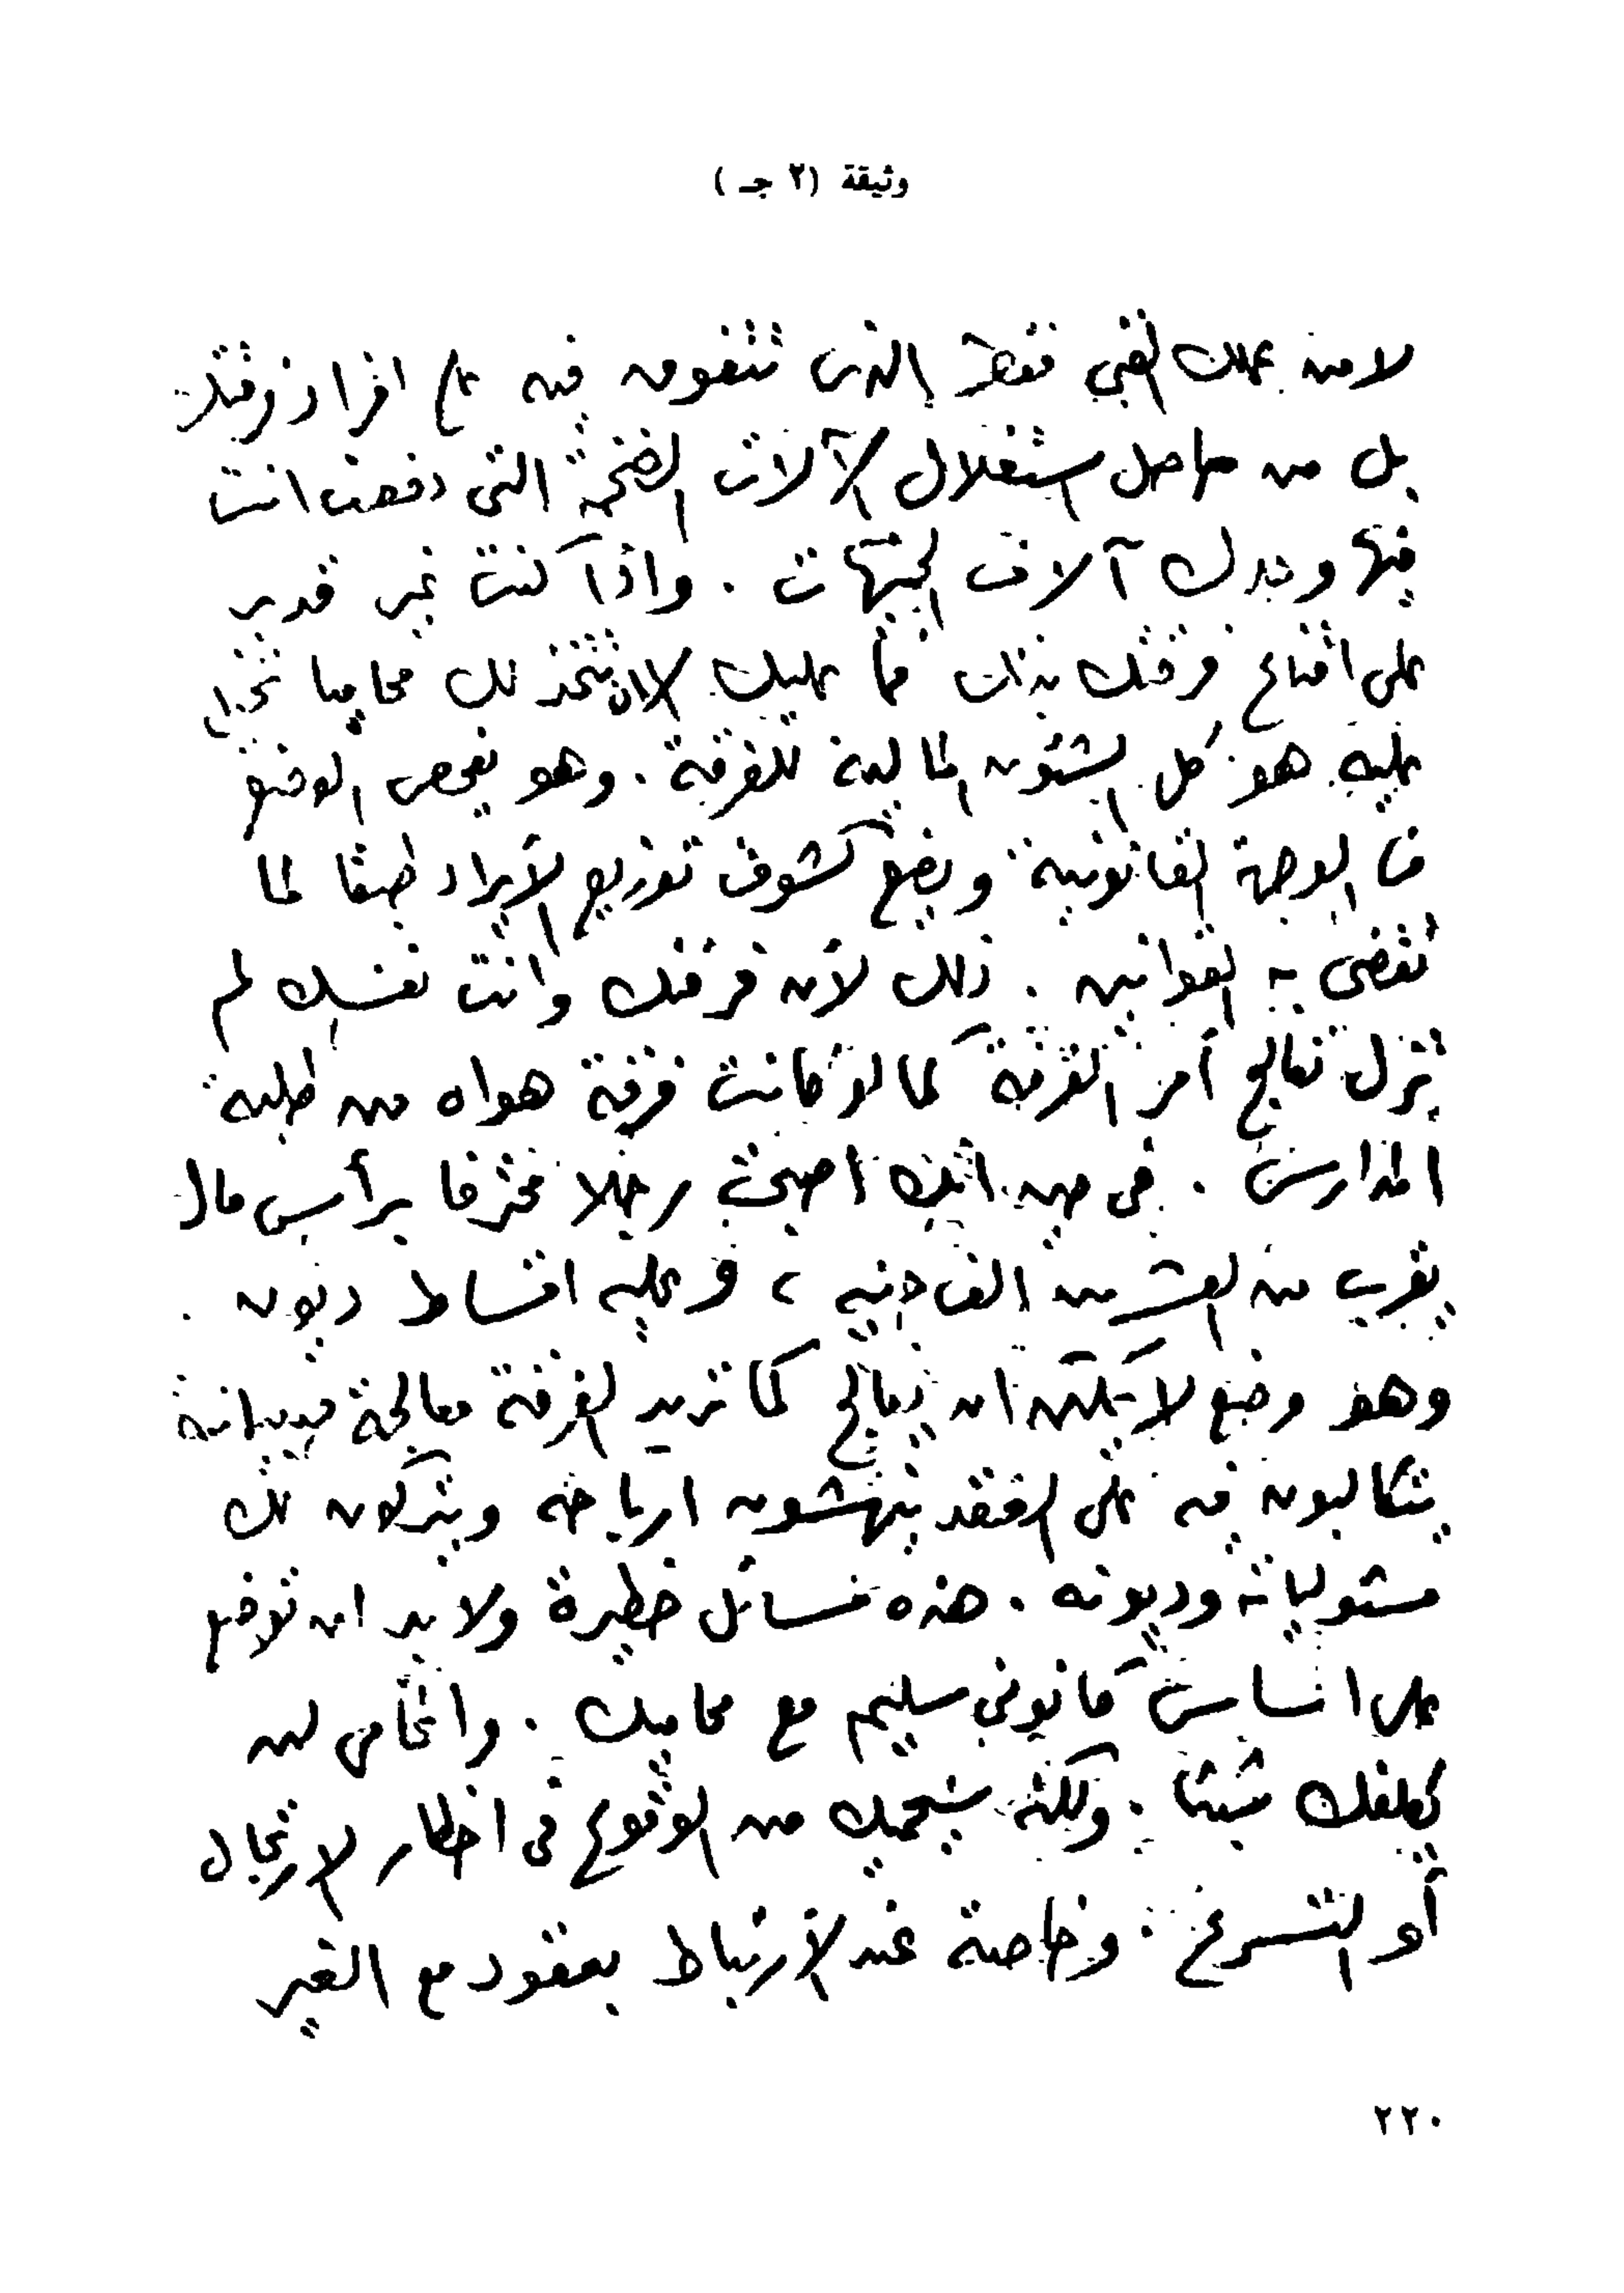 وثيقة (٢ جـ)
لا من عملك الفني فقط الذى تتفوق فيه على افراد فرقتك
بل من حاصل استغلال الآلات الضخمة التى دفعت انت
فيها وحدك آلاف الجنيهات . واذا كنت غير قدير
على اقناع فرقتك بذلك فما عليك الا ان تتخذ لك محاميا تحيل
عليه هو كل الشئون المالية للفرقة . وهو يفحص الوضع
من الوجهة القانونية ويضع كشوف توزيع الايراد طبقا لما
تقضى به القوانين . ذلك لأن فرقتك وانت نفسك لم
تزل تعالج أمر الفرقة كما لو كانت فرقة هواه من طلبة
المدارس . فى حين انك اصبحت رجلا محترفا برأس مال
يقرب من العشرين الف جنيه ، وعليه اقساط ديون .
وهو وضع لا يمكن ان يعالج كما تريد الفرقة معالجة صبيانية
يتكالبون فيه على النقد ينهشون ارباحه ويتركون لك
مسئولياته وديونه . هذه مسائل خطيرة ولابد ان توضع
على اساس قانونى سليم مع محاميك . والمحامى لن
يكلفك شيئا . ولكنه سيحميك من الوقوع فى اخطار الارتجال
أو التسرع . وخاصة عند الارتباط بعقود مع الغير
٢٢٠